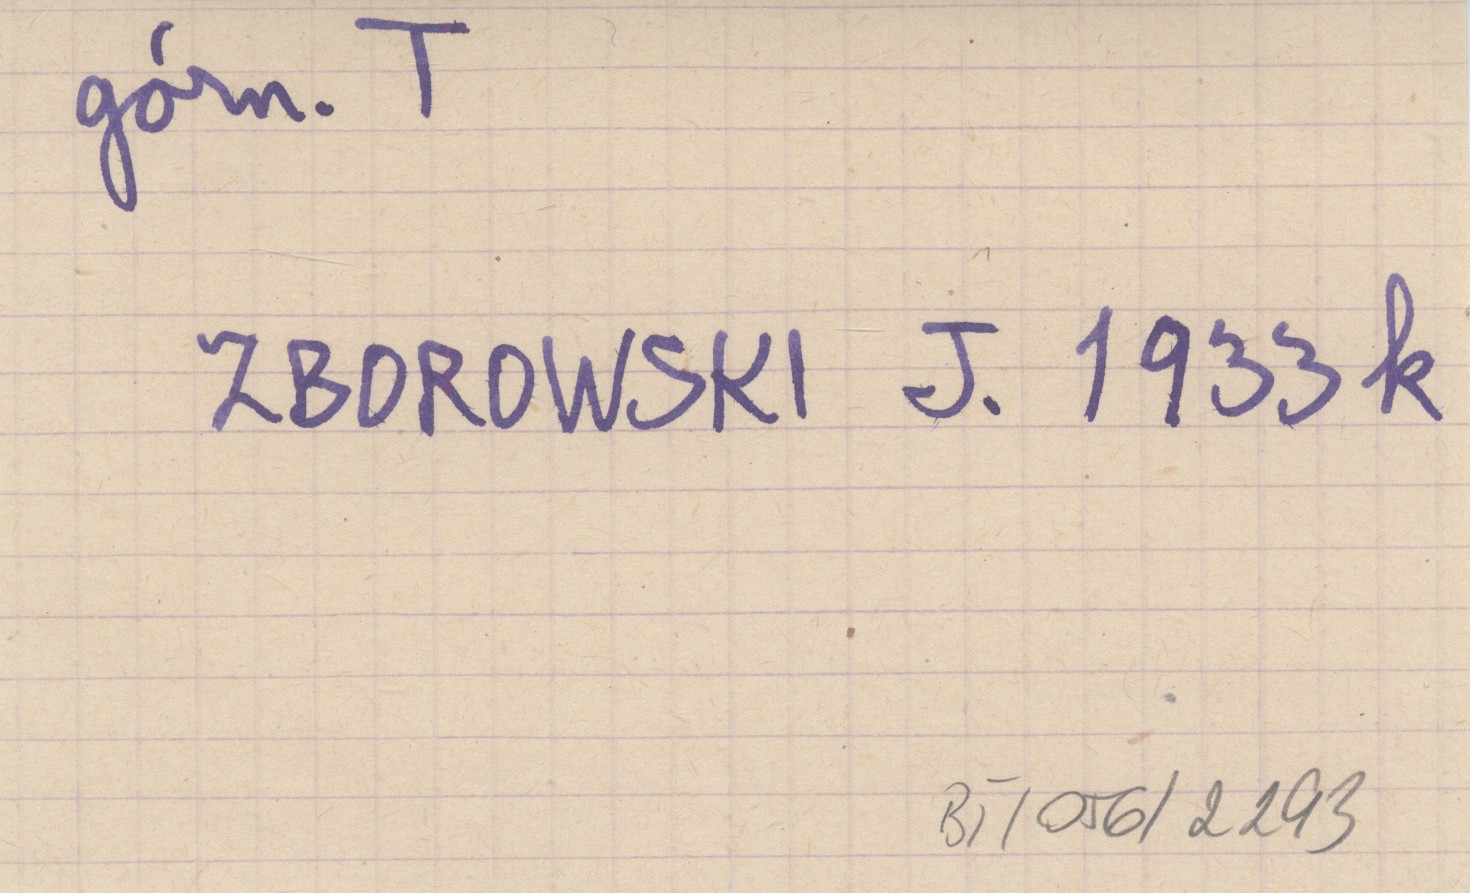 górn. T
ZBOROWSKI J. 1933k
BT/056/2293